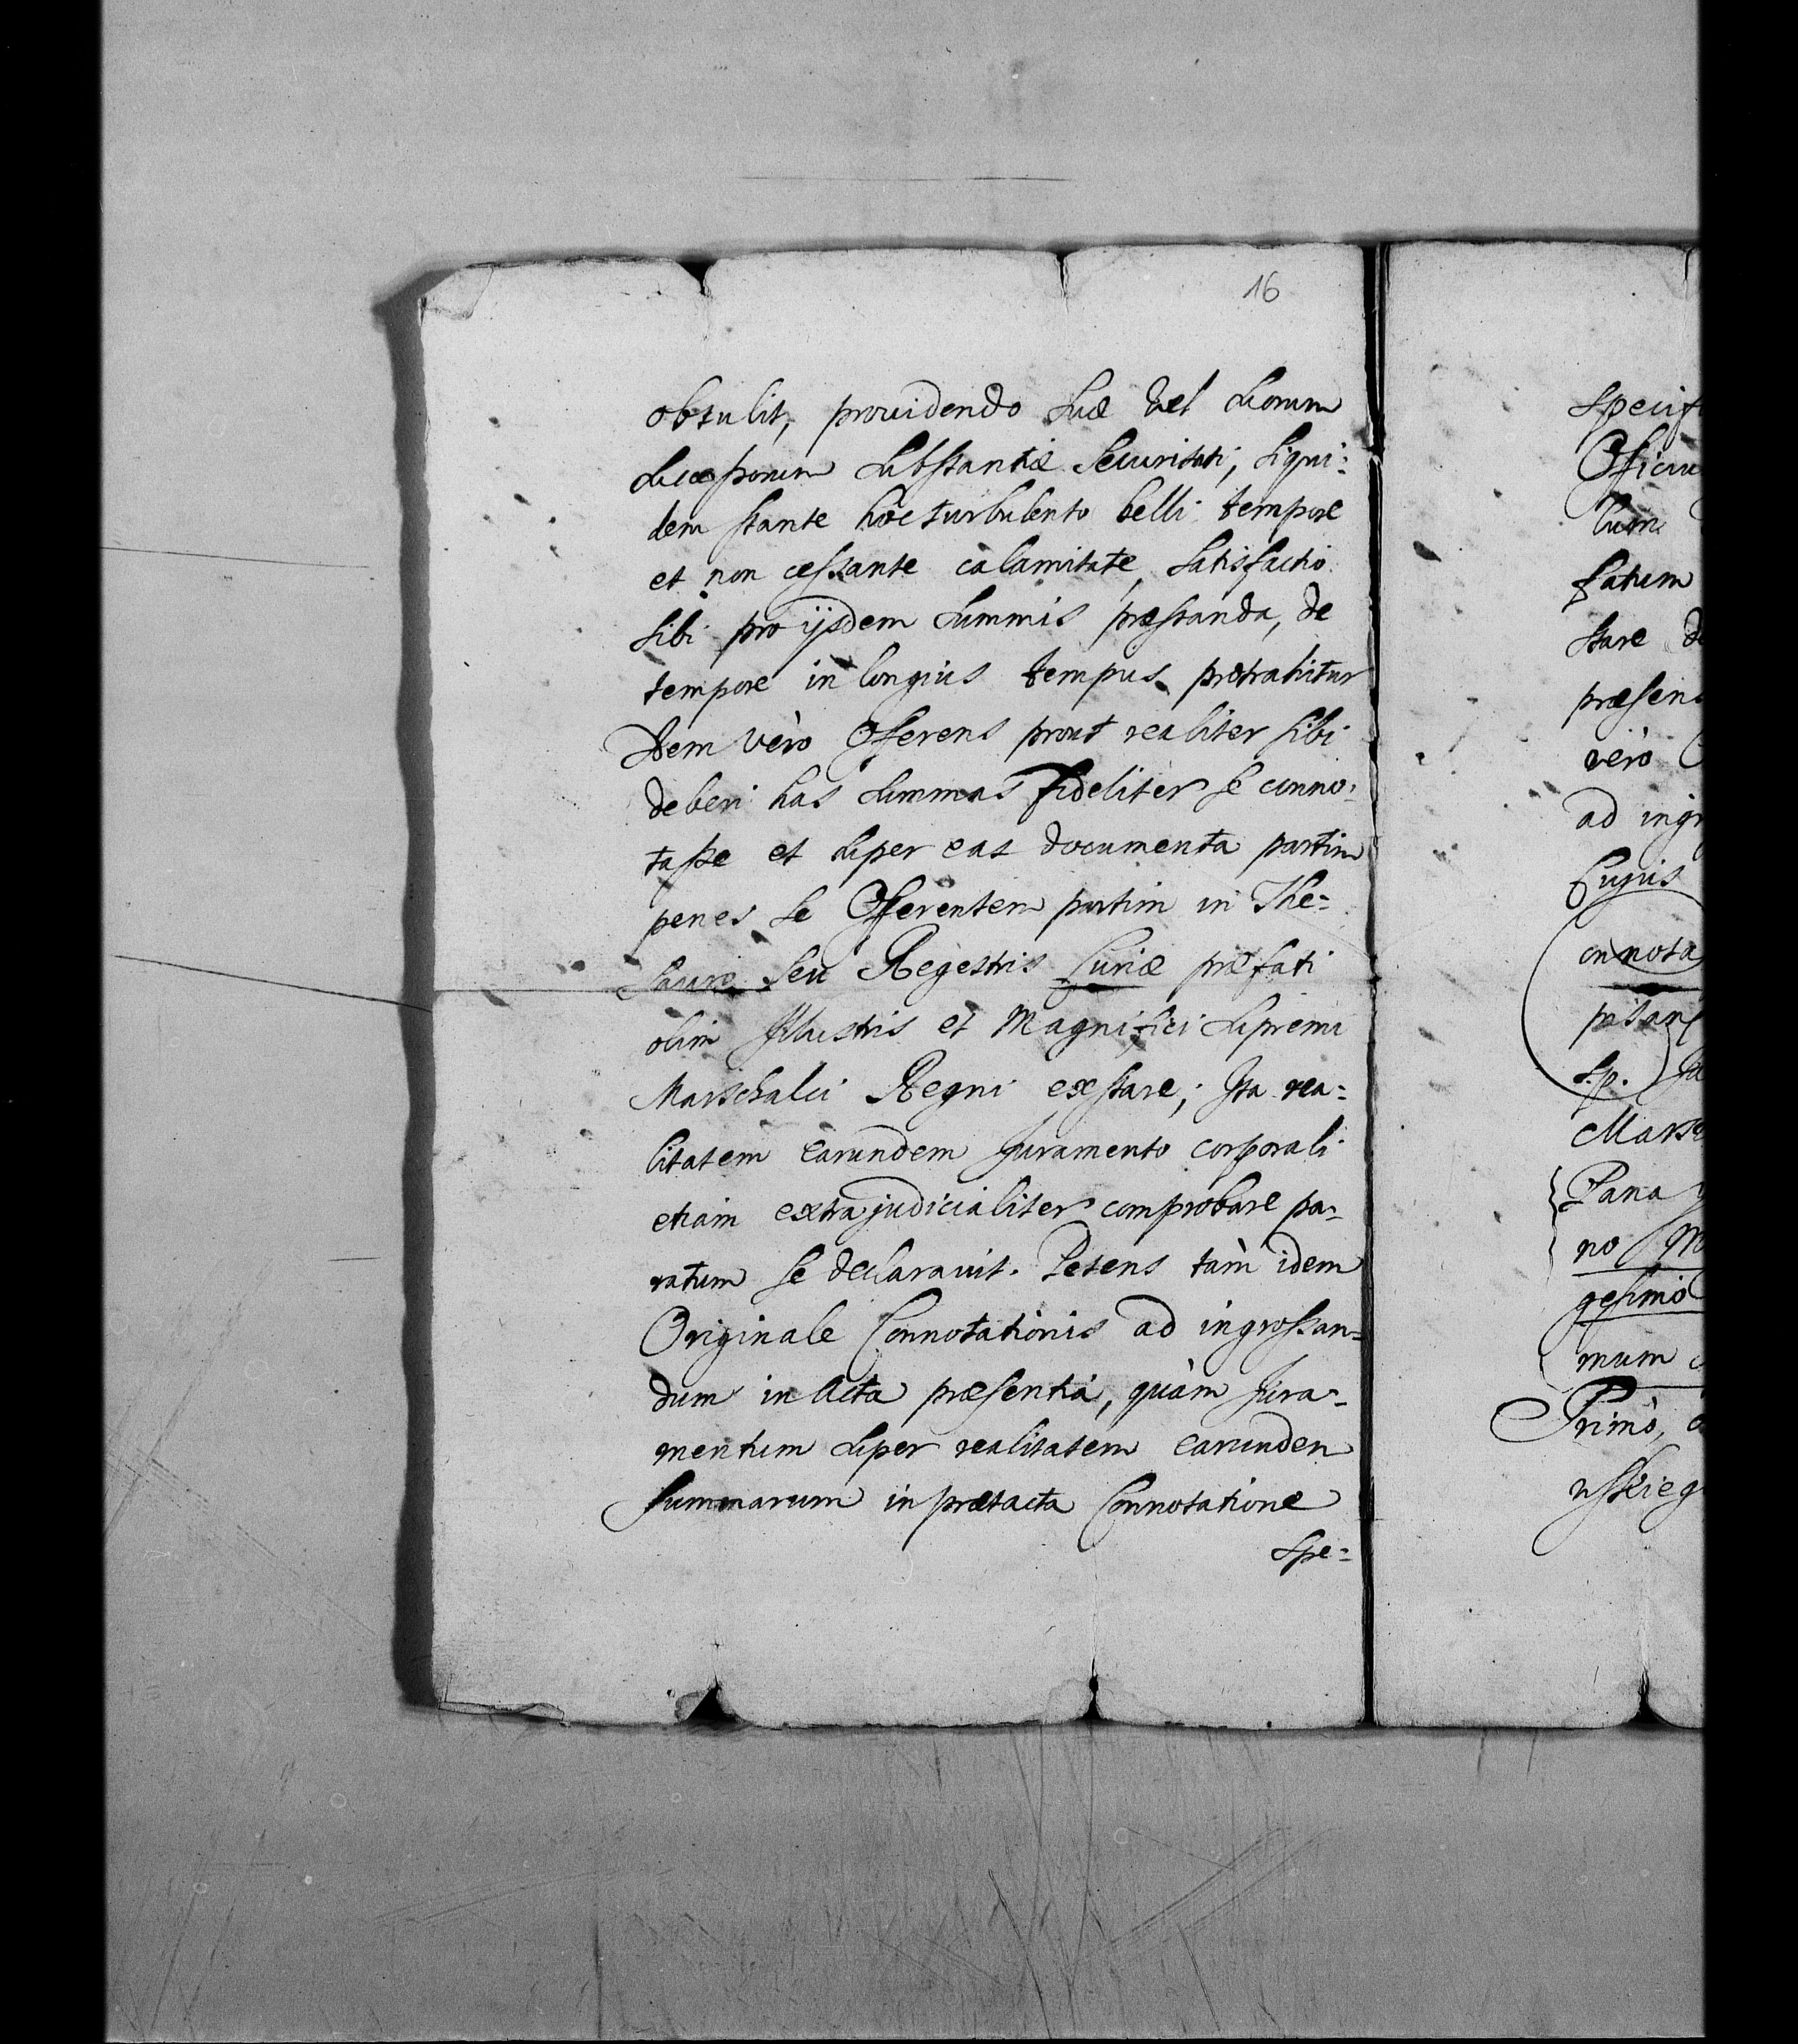 16
obtulit, providendo suæ vel suorum
successorum substantiæ securitati, siqui:
dem stante hoc turbulento belli tempore
et non cessante calamitate, satisfactio
sibi pro ijsdem summis præstanda, de
tempore in longius tempus protrahitur
Idem vèro Offerens prout realiter sibi
deberi has summas fideliter se conno:
tasse et super eas documenta partim
penes se Offerentem partim in The=
sauro seu Regestris Curiæ præfati
olim Illustris et Magnifici supremi
Marschalci Regni exstare; Ita rea=
litatem earundem Juramento corporali
etiam extrajudicialiter comprobare pa=
ratum se declaravit. Petens tàm idem
Originale Connotationis ad ingrossan=
dum in Acta præsentia, quàm Jura=
mentum super realitatem earunden
summarum in prætacta Connotatione
spe=
specif
Officiu
lum
satum
stare de
præsen
verò
ad ingr
Cujus
connota
pitan
s.p.
Marsz
Pana
no
gesimo
mum
Primò,